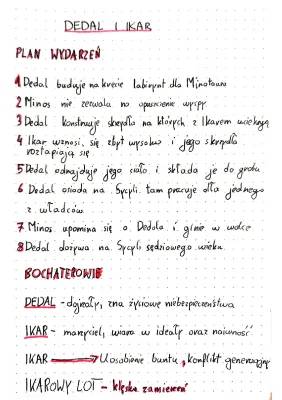 DEDAL I IKAR
PLAN WYDARZEŃ
1 Dedal buduje na krecie labirynt dla Minotaura
2 Minos nie zezwala na opuszczenie wyspy
3 Dedal konstruuje skrzydła na których z Ikarem
4 Ikar wznosi się zbyt wysoko i jego skrzydła
roztapiają się
5 Dedal odnajduje jego ciało i składa je do grobu
6 Dedal osiada na Sycyli. tam pracuje dla jednego
z władców
7 Minos upomina się o Dedala i ginie w walce
8 Dedal dożywa na Sycyli sędziowego wieku
BOCHATEROWIE
DEDAL - dojrzały, zna życiowe niebezpieczeństwa
IKAR - marzyciel, wiara w ideały oraz naiwność
IKAR → Uosobienie buntu, konflikt generacyjny
IKAROWY LOT - klęska zamierzeń